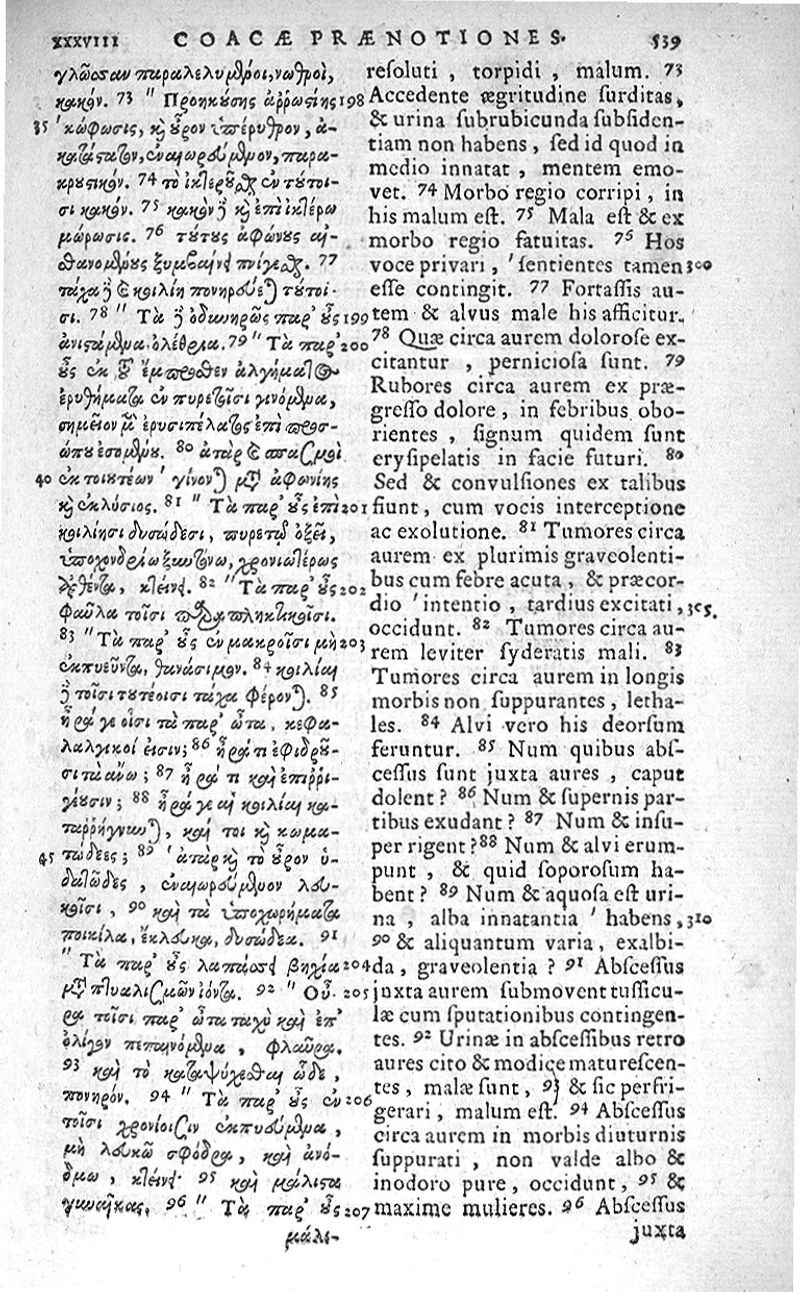 XXXVIII COACÆ PRÆNOTIONES. 539
γλῶσσαν παραλελυμένοι, νωθροὶ,
κακόν. 73 " Προηκούσης ἀῤῥωστίης 198
35 'κώφωσις, καὶ οὖρον ὑπέρυθρον, ἀ-
κατάστατον, ἐναιωρούμενον, παρα-
κρουστικόν. 74 τὸ ἰκτεροῦσθαι ἐν τούτοι-
σι κακόν. 75 κακὸν δὲ καὶ ἐπὶ ἰκτέρῳ
μώρωσις. 76 τούτους ἀφώνους αἰ-
σθανομένους ξυμβαίνει γίνεσθαι. 77
τάχα δὲ καὶ κοιλίη πονηρεύεται τούτοι-
σι. 78 " Τὰ δὲ ὀδυνηρῶς παρ' οὖς 199
ἀνιστάμενα ὀλέθρια. 79 " Τὰ παρ' 200
οὖς ἐκ τοῦ ἔμπροσθεν ἀλγήματος
ἐρυθήματα ἐν πυρετοῖσι γινόμενα,
σημεῖον μὲν ἐρυσιπέλατος ἐπὶ προσ-
ώπου ἐσομένου. 80 ἀτὰρ καὶ σπασμοὶ
40 ἐκ τοιουτέων 'γίνονται μετὰ ἀφωνίης
καὶ ἐκλύσιος. 81 " Τὰ παρ' οὖς ἐπὶ 201
κοιλίησι δυσώδεσι, πυρετῷ ὀξεῖ,
ὑποχονδρίῳ ξυντόνῳ, χρονιωτέρως
ἀρθέντα, κτείνει. 82 " Τὰ παρ' οὖς 202
φαῦλα τοῖσι παραπληκτικοῖσι.
83 " Τὰ παρ' οὖς ἐν μακροῖσι μὴ 203
ἐκπυεῦντα, θανάσιμον. 84 κοιλίαι
δὲ τοῖσι τουτέοισι τάχα φέρονται. 85
ἦρά γε οἷσι τὰ παρ' ὦτα, κεφα-
λαλγικοί εἰσιν; 86 ἦρά τι ἐφιδροῦ-
σι τὰ ἄνω; 87 ἦρά τι καὶ ἐπιῤῥι-
γέουσιν; 88 ἦρά γε αἱ κοιλίαι κα-
ταῤῥήγνυνται, καί τοι καὶ κωμα-
45 τώδεες; 89 'ἀτὰρ καὶ τὸ οὖρον ὑ-
δατῶδες, ἐναιωρούμενον λευ-
κοῖσι, 90 καὶ τὰ ὑποχωρήματα
ποικίλα, ἔκλευκα, δυσώδεα. 91
" Τὰ παρ' οὖς λαπάσσει βηχία 204
μετὰ πτυαλισμῶν ἰόντα. 92 " Οὖ- 205
ρα τοῖσι παρ' ὦτα ταχὺ καὶ ἐπ'
ὀλίγον πεπαινόμενα, φλαῦρα.
93 καὶ τὸ καταψύχεσθαι ὧδε,
πονηρόν. 94 " Τὰ παρ' οὖς ἐν 206
τοῖσι χρονίοισιν ἐκπυούμενα,
μὴ λευκῷ σφόδρα, καὶ ἀνό-
δμῳ, κτείνει· 95 καὶ μάλιστα
γυναῖκας. 96 " Τὰ παρ' οὖς 207
μάλι-
reſoluti, torpidi, malum. 73
Accedente ægritudine ſurditas,
& urina ſubrubicunda ſubſiden-
tiam non habens, ſed id quod in
medio innatat, mentem emo-
vet. 74 Morbo regio corripi, in
his malum eſt. 75 Mala eſt & ex
morbo regio fatuitas. 76 Hos
voce privari, 'ſentientes tamen 300
eſſe contingit. 77 Fortaſſis au-
tem & alvus male his afficitur.
78 Quæ circa aurem doloroſe ex-
citantur, pernicioſa ſunt. 79
Rubores circa aurem ex præ-
greſſo dolore, in febribus obo-
rientes, ſignum quidem ſunt
eryſipelatis in facie futuri. 80
Sed & convulſiones ex talibus
fiunt, cum vocis interceptione
ac exolutione. 81 Tumores circa
aurem ex plurimis graveolenti-
bus cum febre acuta, & præcor-
dio 'intentio, tardius excitati, 305.
occidunt. 82 Tumores circa au-
rem leviter ſyderatis mali. 83
Tumores circa aurem in longis
morbis non ſuppurantes, letha-
les. 84 Alvi vero his deorſum
feruntur. 85 Num quibus abſ-
ceſſus ſunt juxta aures, caput
dolent? 86 Num & ſupernis par-
tibus exudant? 87 Num & inſu-
per rigent? 88 Num & alvi erum-
punt, & quid ſoporoſum ha-
bent? 89 Num & aquoſa eſt uri-
na, alba innatantia 'habens, 310
90 & aliquantum varia, exalbi-
da, graveolentia? 91 Abſceſſus
juxta aurem ſubmovent tuſſicu-
læ cum ſputationibus contingen-
tes. 92 Urinæ in abſceſſibus retro
aures cito & modice matureſcen-
tes, malæ ſunt, 93 & ſic perfri-
gerari, malum eſt. 94 Abſceſſus
circa aurem in morbis diuturnis
ſuppurati, non valde albo &
inodoro pure, occidunt, 95 &
maxime mulieres. 96 Abſceſſus
juxta